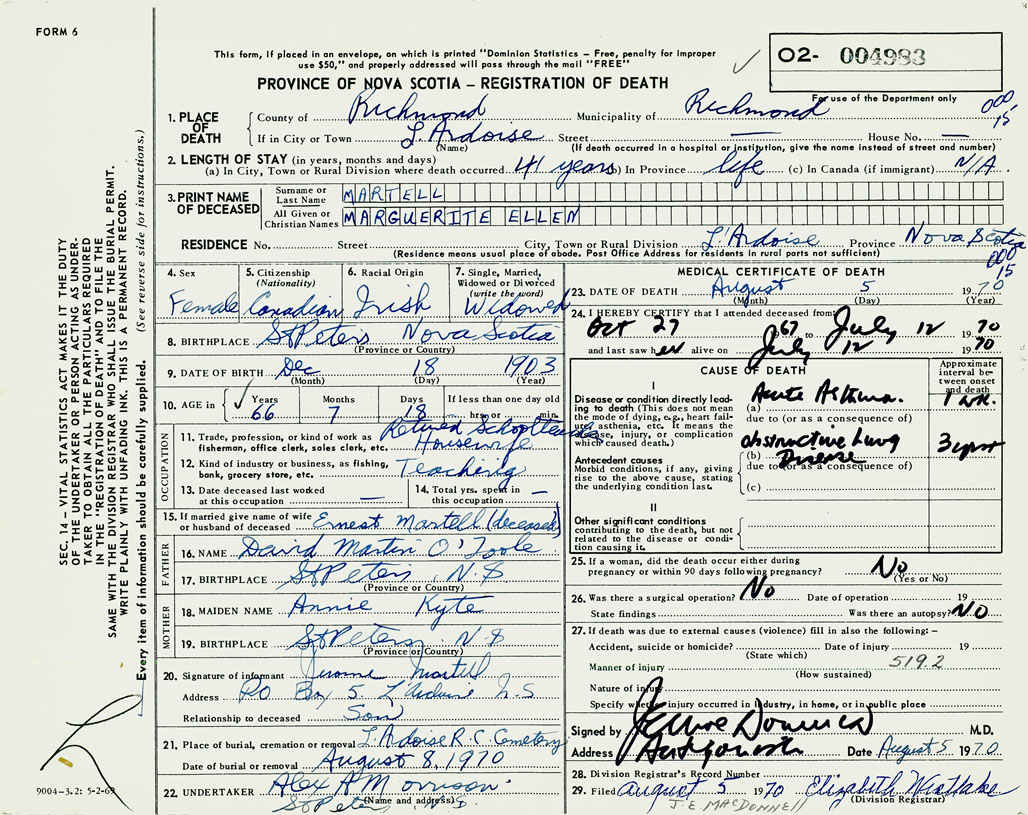 FORM 6
This form, if placed in an envelope, on which is printed "Dominion Statistics – Free, penalty for improper
use $50," and properly addressed will pass through the mail "FREE"
O2- 004983
For use of the Department only
PROVINCE OF NOVA SCOTIA – REGISTRATION OF DEATH
000
15
1. PLACE OF DEATH
County of Richmond Municipality of Richmond
If in City or Town L'Ardoise Street — House No. —
(Name) (If death occurred in a hospital or institution, give the name instead of street and number)
2. LENGTH OF STAY (in years, months and days)
(a) In City, Town or Rural Division where death occurred 41 years (b) In Province life (c) In Canada (if immigrant) N/A
3. PRINT NAME OF DECEASED
Surname or Last Name MARTELL
All Given or Christian Names MARGUERITE ELLEN
RESIDENCE No. Street City, Town or Rural Division L'Ardoise Province Nova Scotia
(Residence means usual place of abode. Post Office Address for residents in rural parts not sufficient)
000
15
4. Sex Female
5. Citizenship (Nationality) Canadian
6. Racial Origin Irish
7. Single, Married, Widowed or Divorced (write the word) Widowed
8. BIRTHPLACE St Peters Nova Scotia
(Province or Country)
9. DATE OF BIRTH Dec 18 1903
(Month) (Day) (Year)
10. AGE in Years 66 Months 7 Days 18 If less than one day old hrs. or min.
OCCUPATION
11. Trade, profession, or kind of work as fisherman, office clerk, sales clerk, etc. Retired School Housewife
12. Kind of industry or business, as fishing, bank, grocery store, etc. Teaching
13. Date deceased last worked at this occupation —
14. Total yrs. spent in this occupation —
15. If married give name of wife or husband of deceased Ernest Martell (deceased)
FATHER
16. NAME David Martin O'Toole
17. BIRTHPLACE St Peters, N.S
(Province or Country)
MOTHER
18. MAIDEN NAME Annie Kyte
19. BIRTHPLACE St Peters, N.S
(Province or Country)
20. Signature of informant Jerome Martell
Address PO Box 5. L'Ardoise N.S
Relationship to deceased Son
21. Place of burial, cremation or removal L'Ardoise R.C. Cemetery
Date of burial or removal August 8, 1970
22. UNDERTAKER Alex R Morrison
St Peters, N.S.
(Name and address)
MEDICAL CERTIFICATE OF DEATH
23. DATE OF DEATH August 5 1970
(Month) (Day) (Year)
24. I HEREBY CERTIFY that I attended deceased from
Oct 27 1967 to July 12 1970
and last saw her alive on July 12 1970
CAUSE OF DEATH
Approximate interval between onset and death
I
Disease or condition directly leading to death (This does not mean the mode of dying, e.g., heart failure, asthenia, etc. It means the disease, injury, or complication which caused death.)
(a) Acute Asthma. 1 wk.
due to (or as a consequence of)
Antecedent causes
Morbid conditions, if any, giving rise to the above cause, stating the underlying condition last.
(b) Obstructive Lung Disease
due to (or as a consequence of)
(c)
II
Other significant conditions
contributing to the death, but not related to the disease or condition causing it.
25. If a woman, did the death occur either during pregnancy or within 90 days following pregnancy? No
(Yes or No)
26. Was there a surgical operation? No Date of operation 19
State findings Was there an autopsy? NO
27. If death was due to external causes (violence) fill in also the following:–
Accident, suicide or homicide? Date of injury 19
(State which)
519.2
Manner of injury
(How sustained)
Nature of injury
Specify whether injury occurred in industry, in home, or in public place
Signed by M.D.
Address Antigonish Date August 5 1970
28. Division Registrar's Record Number
29. Filed August 5 1970 Elizabeth
J.E. MACDONNELL (Division Registrar)
SEC. 14 – VITAL STATISTICS ACT MAKES IT THE DUTY
OF THE UNDERTAKER OR PERSON ACTING AS UNDER-
TAKER TO OBTAIN ALL THE PARTICULARS REQUIRED
IN THE "REGISTRATION OF DEATH" AND TO FILE THE
SAME WITH THE DIVISION REGISTRAR WHO SHALL ISSUE THE BURIAL PERMIT.
WRITE PLAINLY WITH UNFADING INK. THIS IS A PERMANENT RECORD.
Every item of information should be carefully supplied. (See reverse side for instructions.)
9004-3.2: 5-2-69